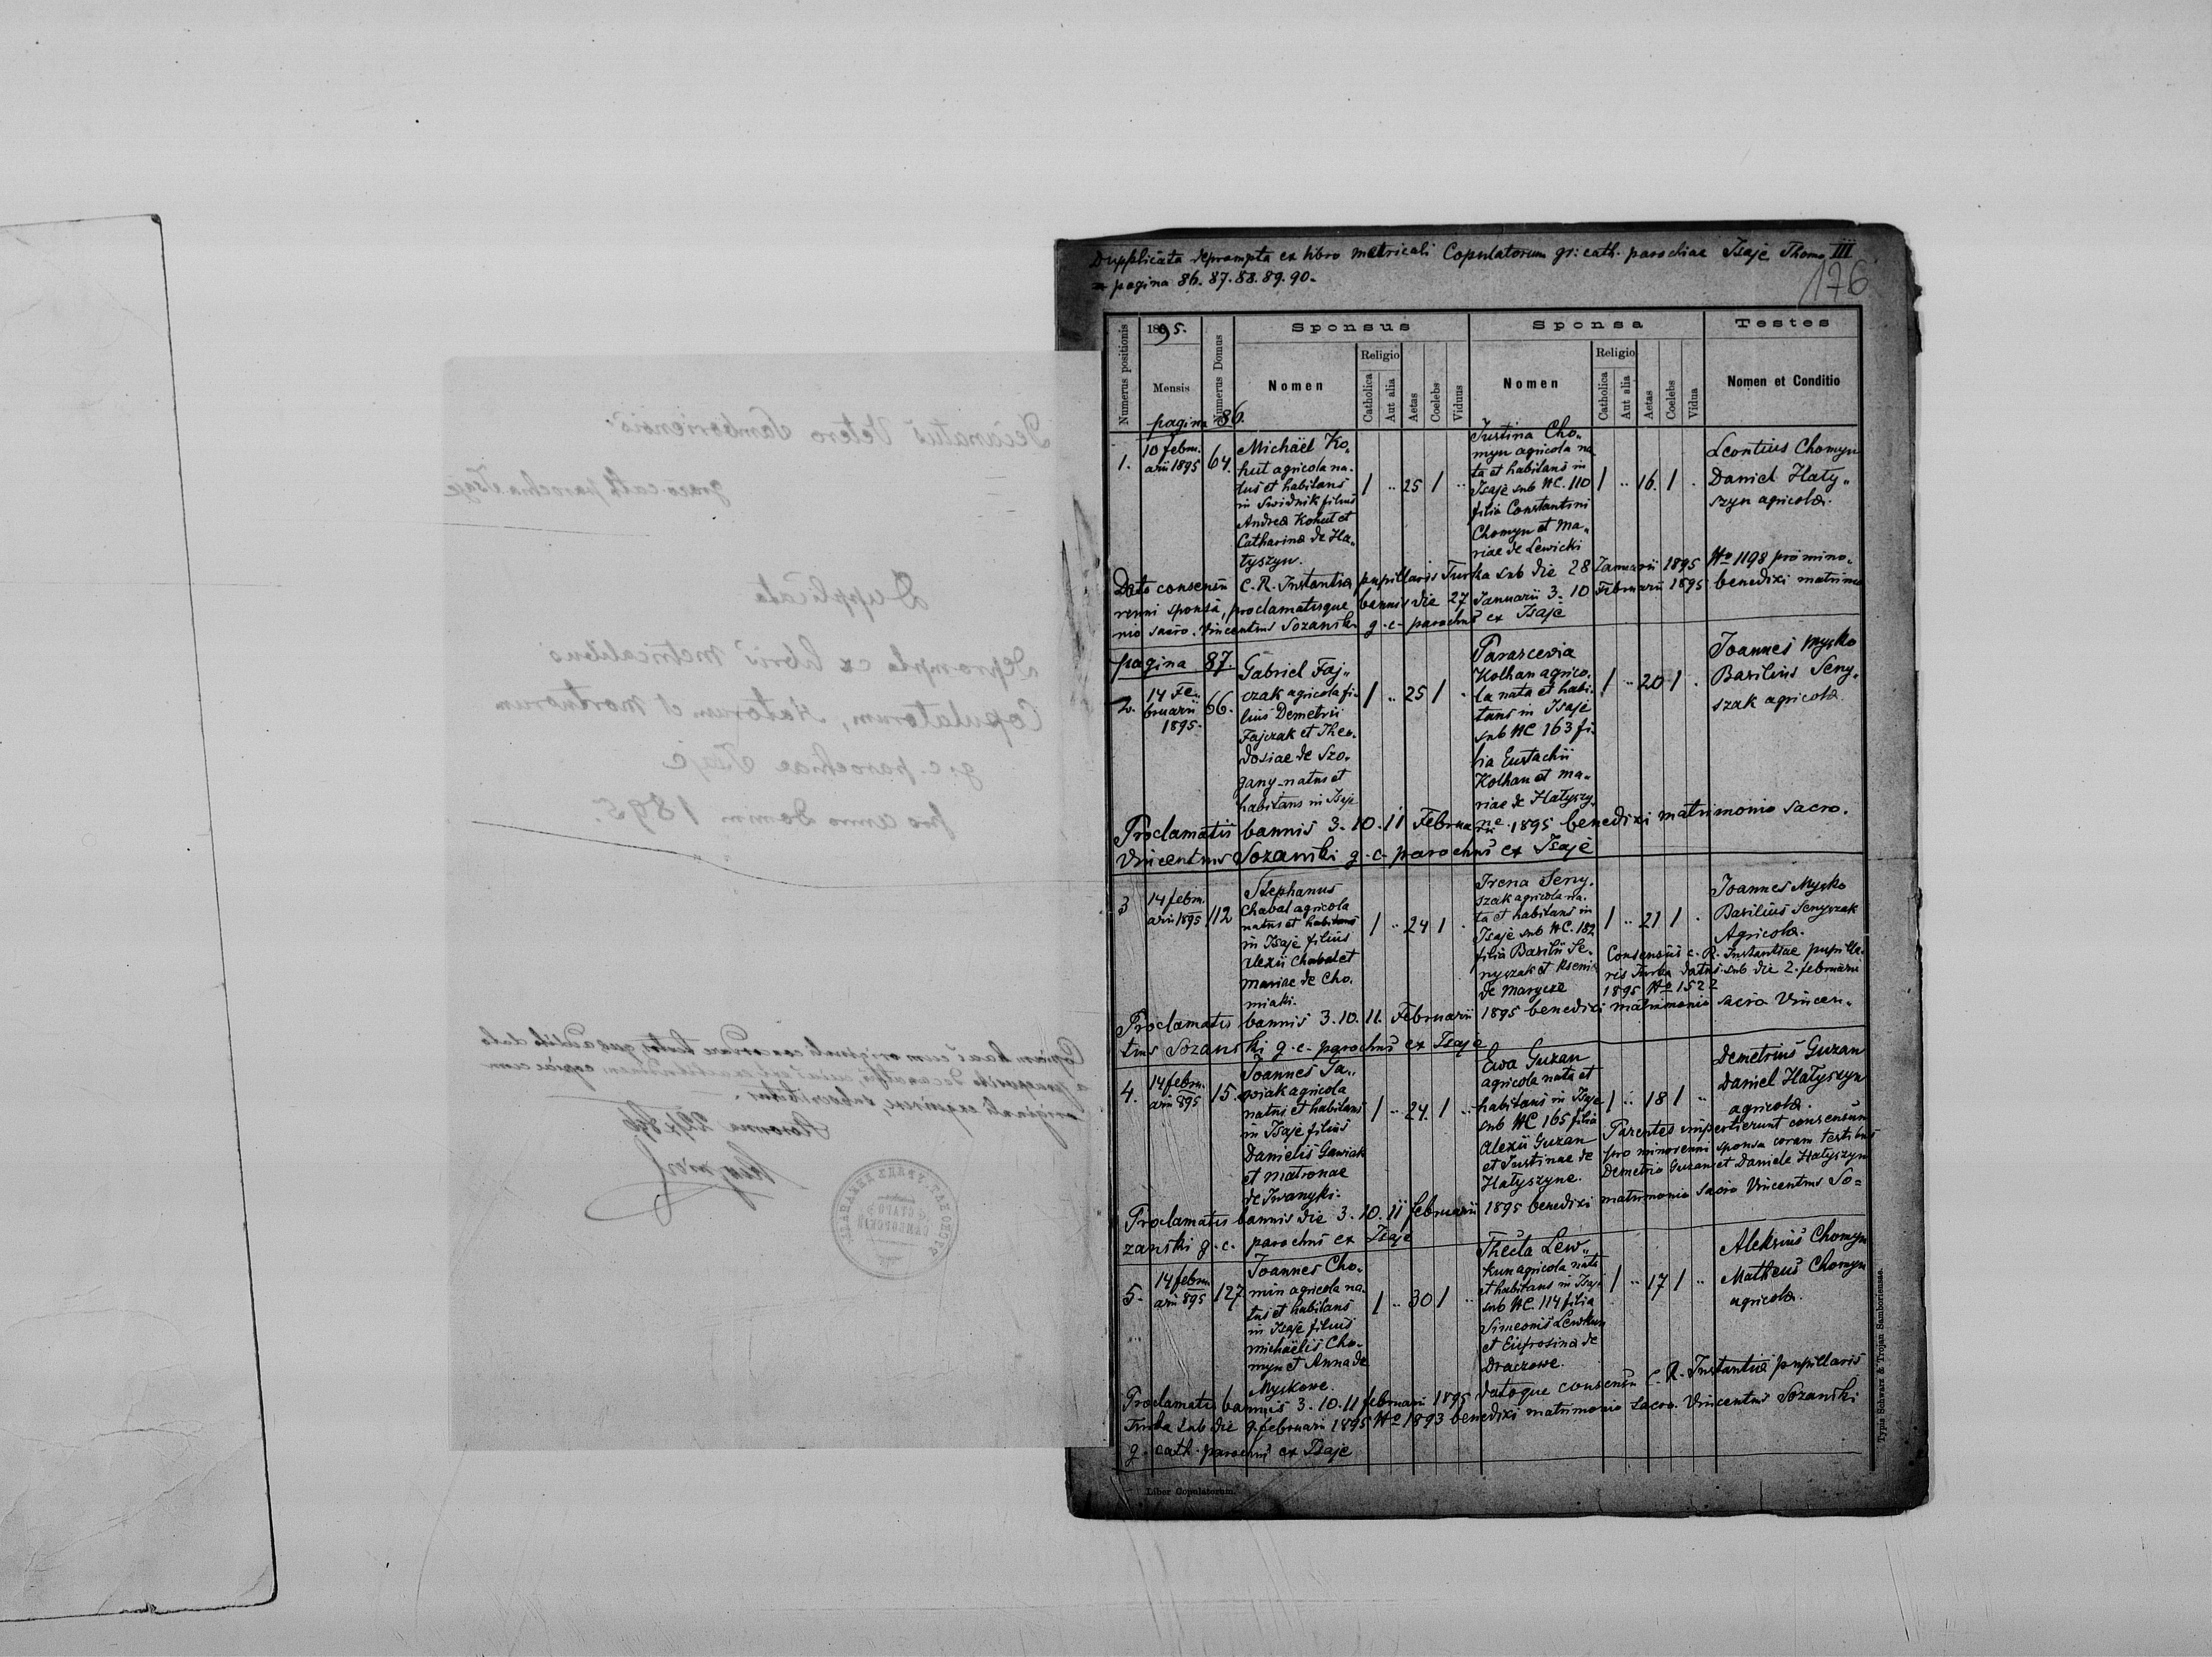 Dupplicata deprompta ex libro metricali Copulatorum gr: cath. parochiae Isaje Thomo III
pagina 86. 87. 88. 89. 90.
176
Numerus positionis
1895.
Mensis
Numerus Domus
Sponsus
Nomen
Religio
Catholica
Aut alia
Aetas
Coelebs
Viduus
Sponsa
Nomen
Religio
Catholica
Aut alia
Aetas
Coelebs
Vidua
Testes
Nomen et Conditio
pagina 86.
1.
10 febru.
arii 1895
64.
Michäel Ko„
hut agricola na.
tus et habitans
in Swidnik filius
Andrea Kohut et
Catharina de Ha„
tyszyn.
1 .. 25 1 ..
Justina Cho„
myn agricola na
ta et habitans in
Isaje sub NC. 110
filia Constantini
Chomyn et Ma„
riae de Lewicki
1 .. 16. 1 .
Leontius Chomyn
Daniel Haty„
szyn agricola.
Dato consensu C. R. Instantia pupillaris Turka sub die 28 Januarii 1895 No 1198 pro mino.
renni sponsa, proclamatisque bannis die 27 Januarii 3. 10 Februarii 1895 benedixi matrimo
nio sacro. Vincentius Sozanski g. c. parochus ex Isaje
pagina 87.
2.
14 Fe„
bruarii
1895.
66.
Gabriel Faj„
czak agricola fi„
lius Demetrii
Fajczak et Theo.
dosiae de Szo.
gany natus et
habitans in Isaje
1 .. 25 1 .
Parascevia
Kolhan agrico.
la nata et habi.
tans in Isaje
sub NC 163 fi.
lia Eustachii
Kolhan et Ma„
riae de Hatyszy.
ne.
1 .. 20 1 .
Joannes Mysko
Basilius Seny„
szak agricola.
Proclamatis bannis 3. 10. 11 Februarii 1895 benedixi matrimonio sacro.
Vincentius Sozanski g. c. parochus ex Isaje
3
14 febru.
arii 1895
112
Stephanus
Chabal agricola
natus et habitans
in Isaje filius
Alexii Chabal et
Mariae de Cho.
miaki.
1 .. 24 1 .
Irena Seny.
szak agricola na.
ta et habitans in
Isaje sub NC. 182
filia Basilii Se.
nyszak et Ksenia
de Marycze
1 .. 21 1 .
Joannes Mysko
Basilius Senyszak
Agricola.
Consensus c. R. Instantiae pupilla.
ris Turka datus sub die 2. februarii
1895 No 1522
Proclamatis bannis 3. 10. 11. Februarii 1895 benedixi matrimonio sacro Vincen„
tius Sozanski g. c. parochus ex Isaje
4.
14 febru.
arii 895
15.
Joannes Ga„
wiak agricola
natus et habitans
in Isaje filius
Danielis Gawiak
et Matronae
de Iwanyki.
1 .. 24. 1 ..
Ewa Guzan
agricola nata et
habitans in Isaje
sub NC 165 filia
Alexii Guzan
et Justinae de
Hatyszyne.
1 .. 18 1 ..
Demetrius Guzan
Daniel Hatyszyn
agricola.
Parentes impertierunt consensum
pro minorenni sponsa coram testibus
Demetrio Guzan et Daniele Hatyszyn
Proclamatis bannis die 3. 10. 11 februarii 1895 benedixi matrimonio sacro Vincentius So=
zanski g. c. parochus ex Isaje
5.
14 febru.
arii 895
127
Joannes Cho„
min agricola na.
tus et habitans
in Isaje filius
Michäelis Cho„
myn et Anna de
Myskowe.
1 .. 30 1 ..
Thecla Lew„
kun agricola nata
et habitans in Isaje
sub NC. 114 filia
Simeonis Lewkun
et Eufrosina de
Draczowe.
1 .. 17 1 ..
Aleksius Chomyn
Matheus Chomyn
agricola.
Proclamatis bannis 3. 10. 11 februarii 1895 datoque consensu C. R. Instantia pupillaris
Turka sub die 9. februarii 1895 No 1893 benedixi matrimonio sacro. Vincentius Sozanski
g. cath. parochus ex Isaje
Liber Copulatorum.
Typis Schwarz & Trojan Samboriensae.
Decanatus Vetero Samboriensis.
graeco cath parochia Isaje
Dupplicata
deprompta ex libris metricalibus
Copulatorum, Natorum et Mortuorum
g. c. parochiae Isaje
pro anno Domini 1895.